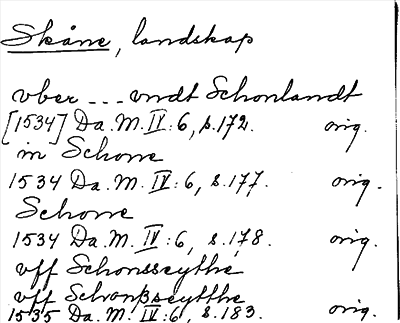 Skåne, landskap
vber --- vndt Schonlandt
[1534] Da. M. IV:6, s. 172. orig.
in Schone
1534 Da. M. IV:6, s. 177. orig.
Schone
1534 Da. M. IV:6, s. 178. orig.
vff Schonsseythe
vff Schonßseytthe
1535 Da. M. IV:6, s. 183. orig.